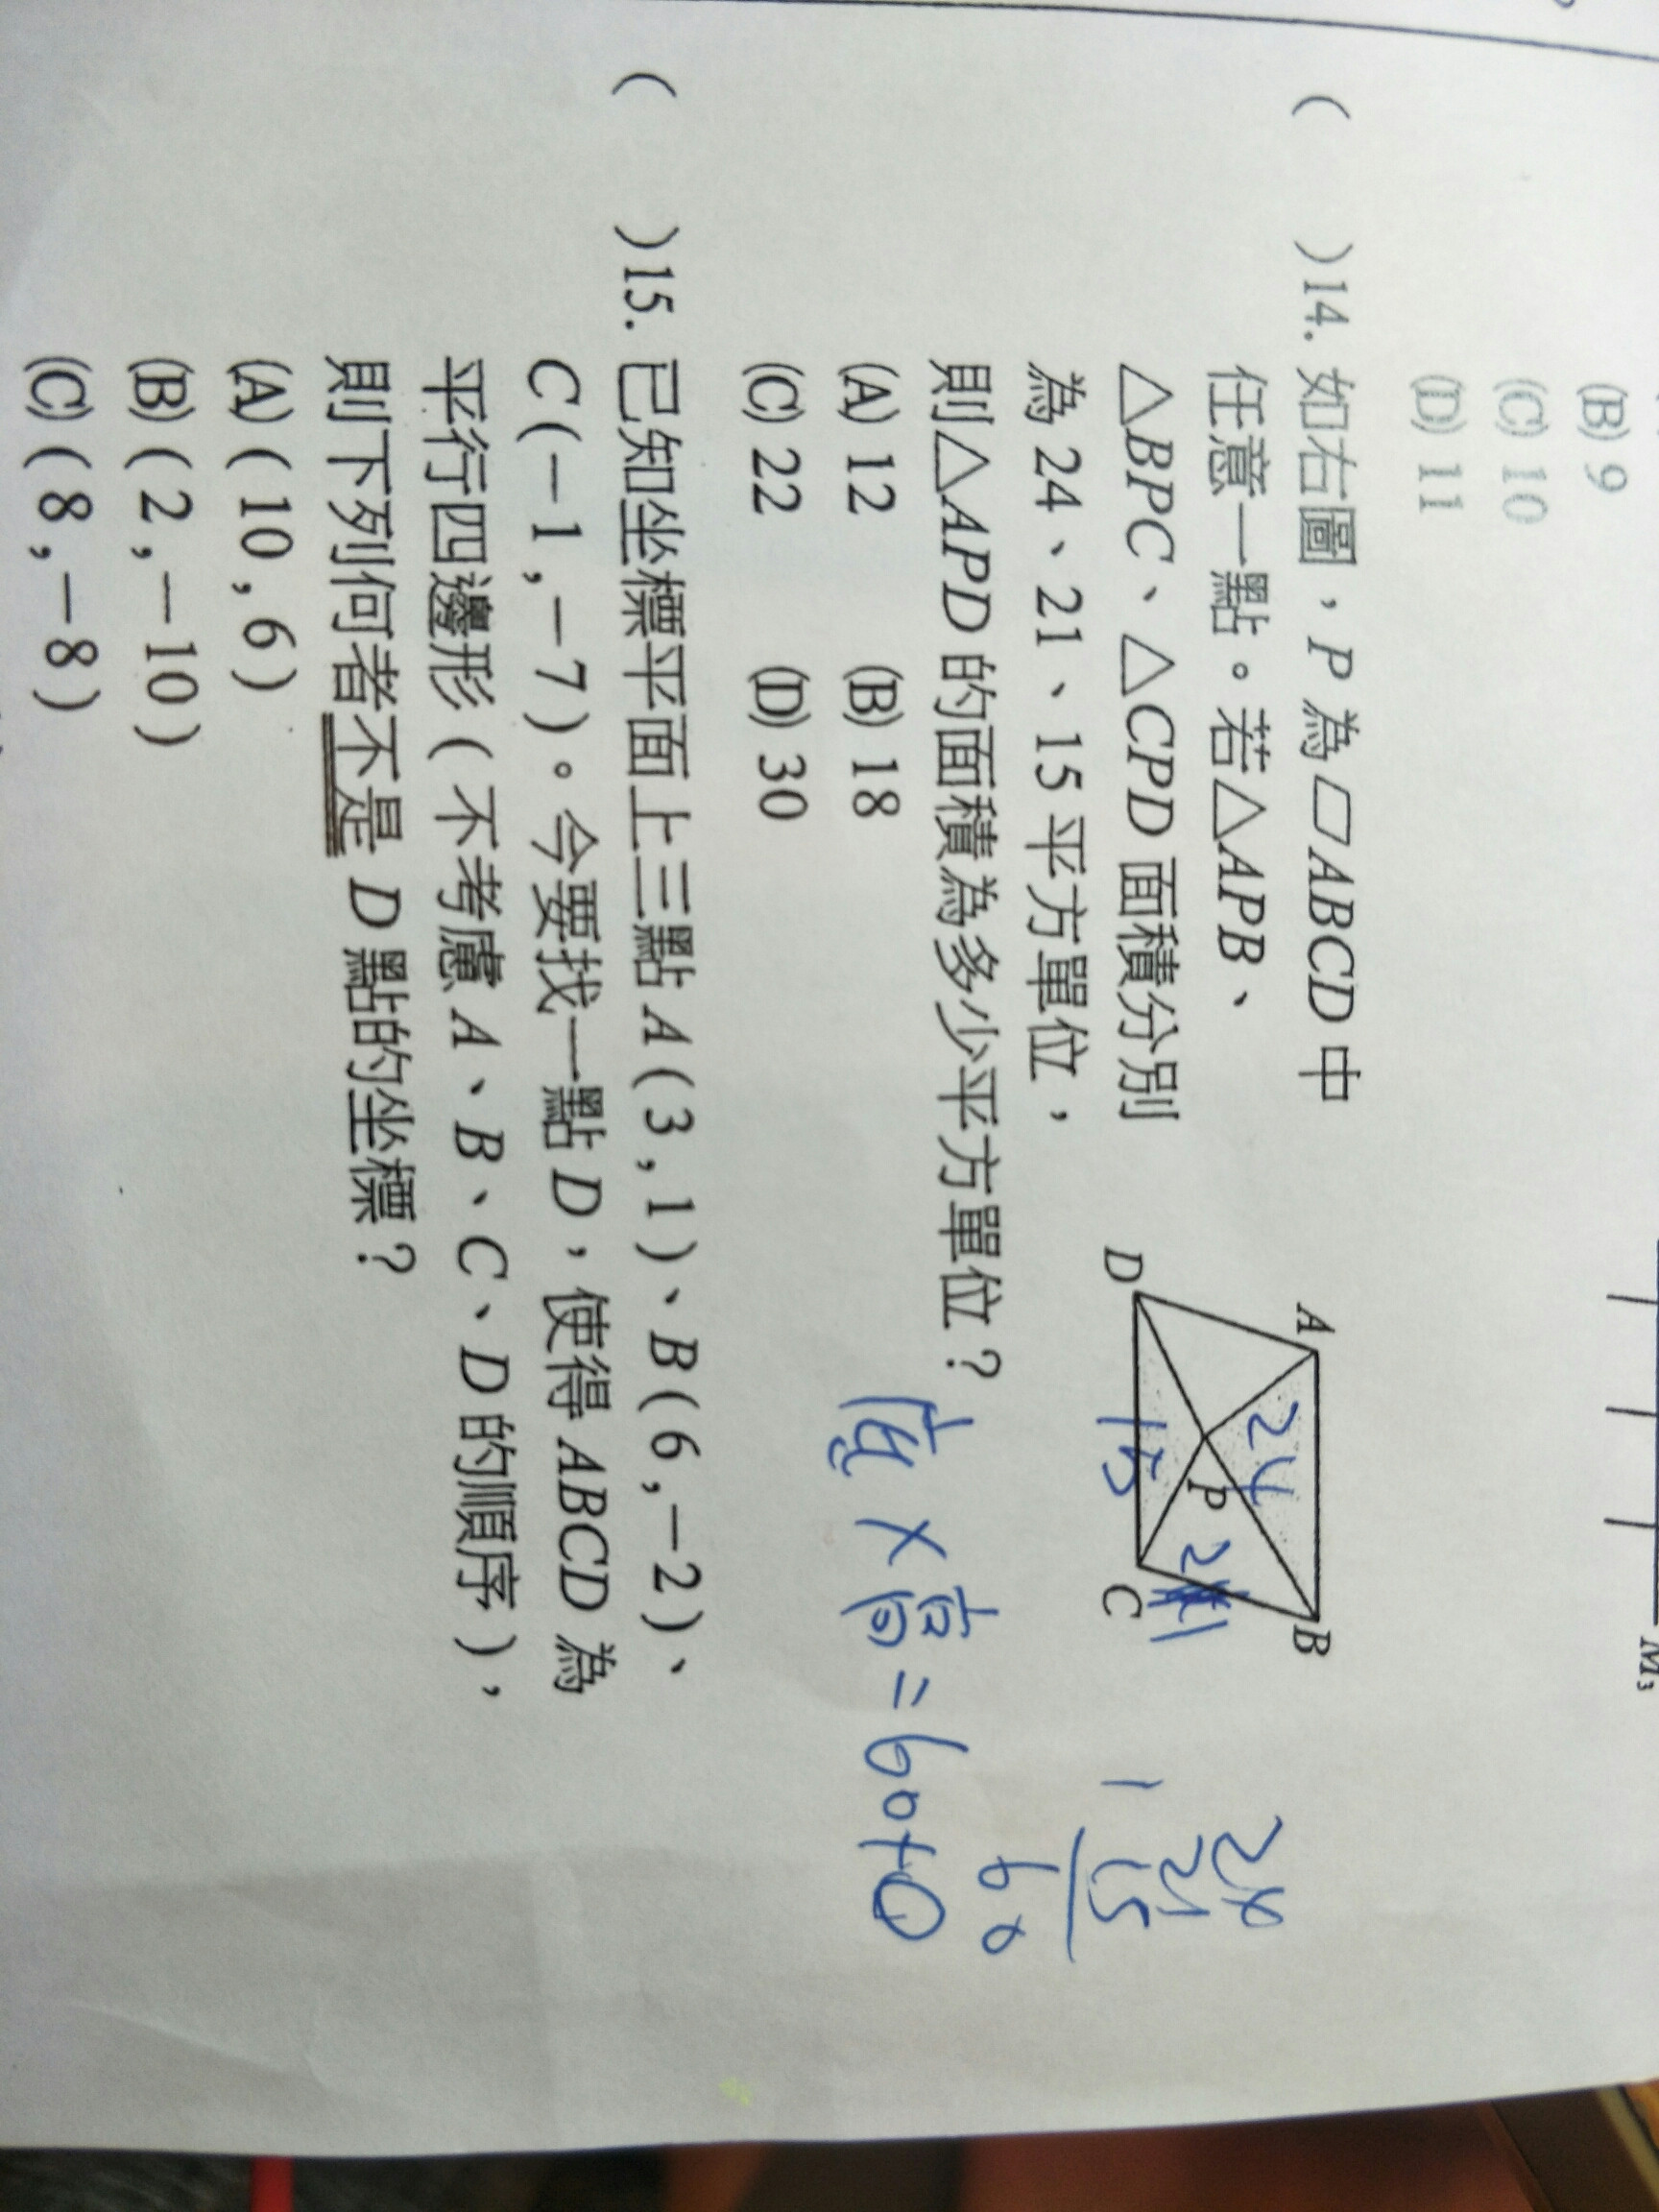 (B) 9
(C) 10
(D) 11
M₃
( )14. 如右圖，P 為 ▱ABCD 中
任意一點。若△APB、
△BPC、△CPD 面積分別
為 24、21、15 平方單位，
則△APD 的面積為多少平方單位？
(A) 12 (B) 18
(C) 22 (D) 30
A
B
24
P
21
D
15
C
24
21
1 15
60
底×高=60+0
( )15. 已知坐標平面上三點 A ( 3 , 1 )、B ( 6 , －2 )、
C ( －1 , －7 )。今要找一點 D，使得 ABCD 為
平行四邊形 ( 不考慮 A、B、C、D 的順序 )，
則下列何者不是 D 點的坐標？
(A) ( 10 , 6 )
(B) ( 2 , －10 )
(C) ( 8 , －8 )